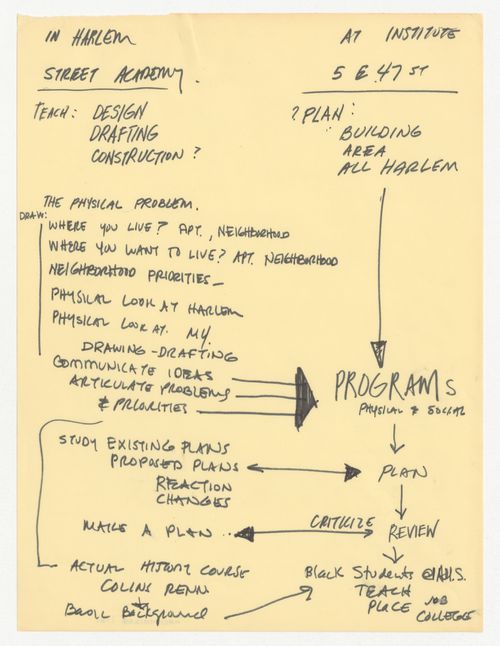 IN HARLEM
STREET ACADEMY.
TEACH: DESIGN
DRAFTING
CONSTRUCTION?
THE PHYSICAL PROBLEM.
DRAW:
WHERE YOU LIVE? APT., NEIGHBORHOOD
WHERE YOU WANT TO LIVE? APT. NEIGHBORHOOD
NEIGHBORHOOD PRIORITIES_
PHYSICAL LOOK AT HARLEM
PHYSICAL LOOK AT. MY.
DRAWING-DRAFTING
COMMUNICATE IDEAS
ARTICULATE PROBLEMS
& PRIORITIES
STUDY EXISTING PLANS
PROPOSED PLANS
REACTION
CHANGES
MAKE A PLAN
ACTUAL HISTORY COURSE
COLINS RENN
Basic Background
AT INSTITUTE
5 E. 47 ST
? PLAN:
BUILDING
AREA
ALL HARLEM
PROGRAMS
PHYSICAL & SOCIAL
PLAN
CRITICIZE
REVIEW
Black Students
TEACH
PLACE
JOB
COLLEGES